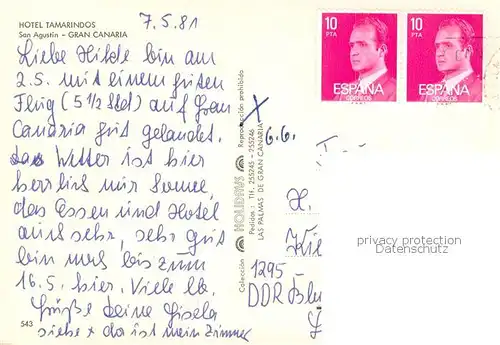 HOTEL TAMARINDOS
San Agustin - GRAN CANARIA
7.5.81
Liebe Hilde bin am
2.5. mit einem guten
Flug (5 1/2 Std) auf Gran
Canaria gut gelandet.
Wetter ist hier
herrlich nur Sonne,
das Essen und Hotel
auch sehr, sehr gut
bin noch bis zum
16.5. hier. Viele lb.
Grüße deine Gisela
siehe x da ist mein Zimmer
543
Colección HOLIDAYS Reproducción prohibida
Pedidos: Tlf. 255245 - 255246
LAS PALMAS DE GRAN CANARIA
X
6.6.
10
PTA
ESPAÑA
CORREOS
10
PTA
ESPAÑA
CORREOS
H.
1295
DDR
privacy protection
Datenschutz